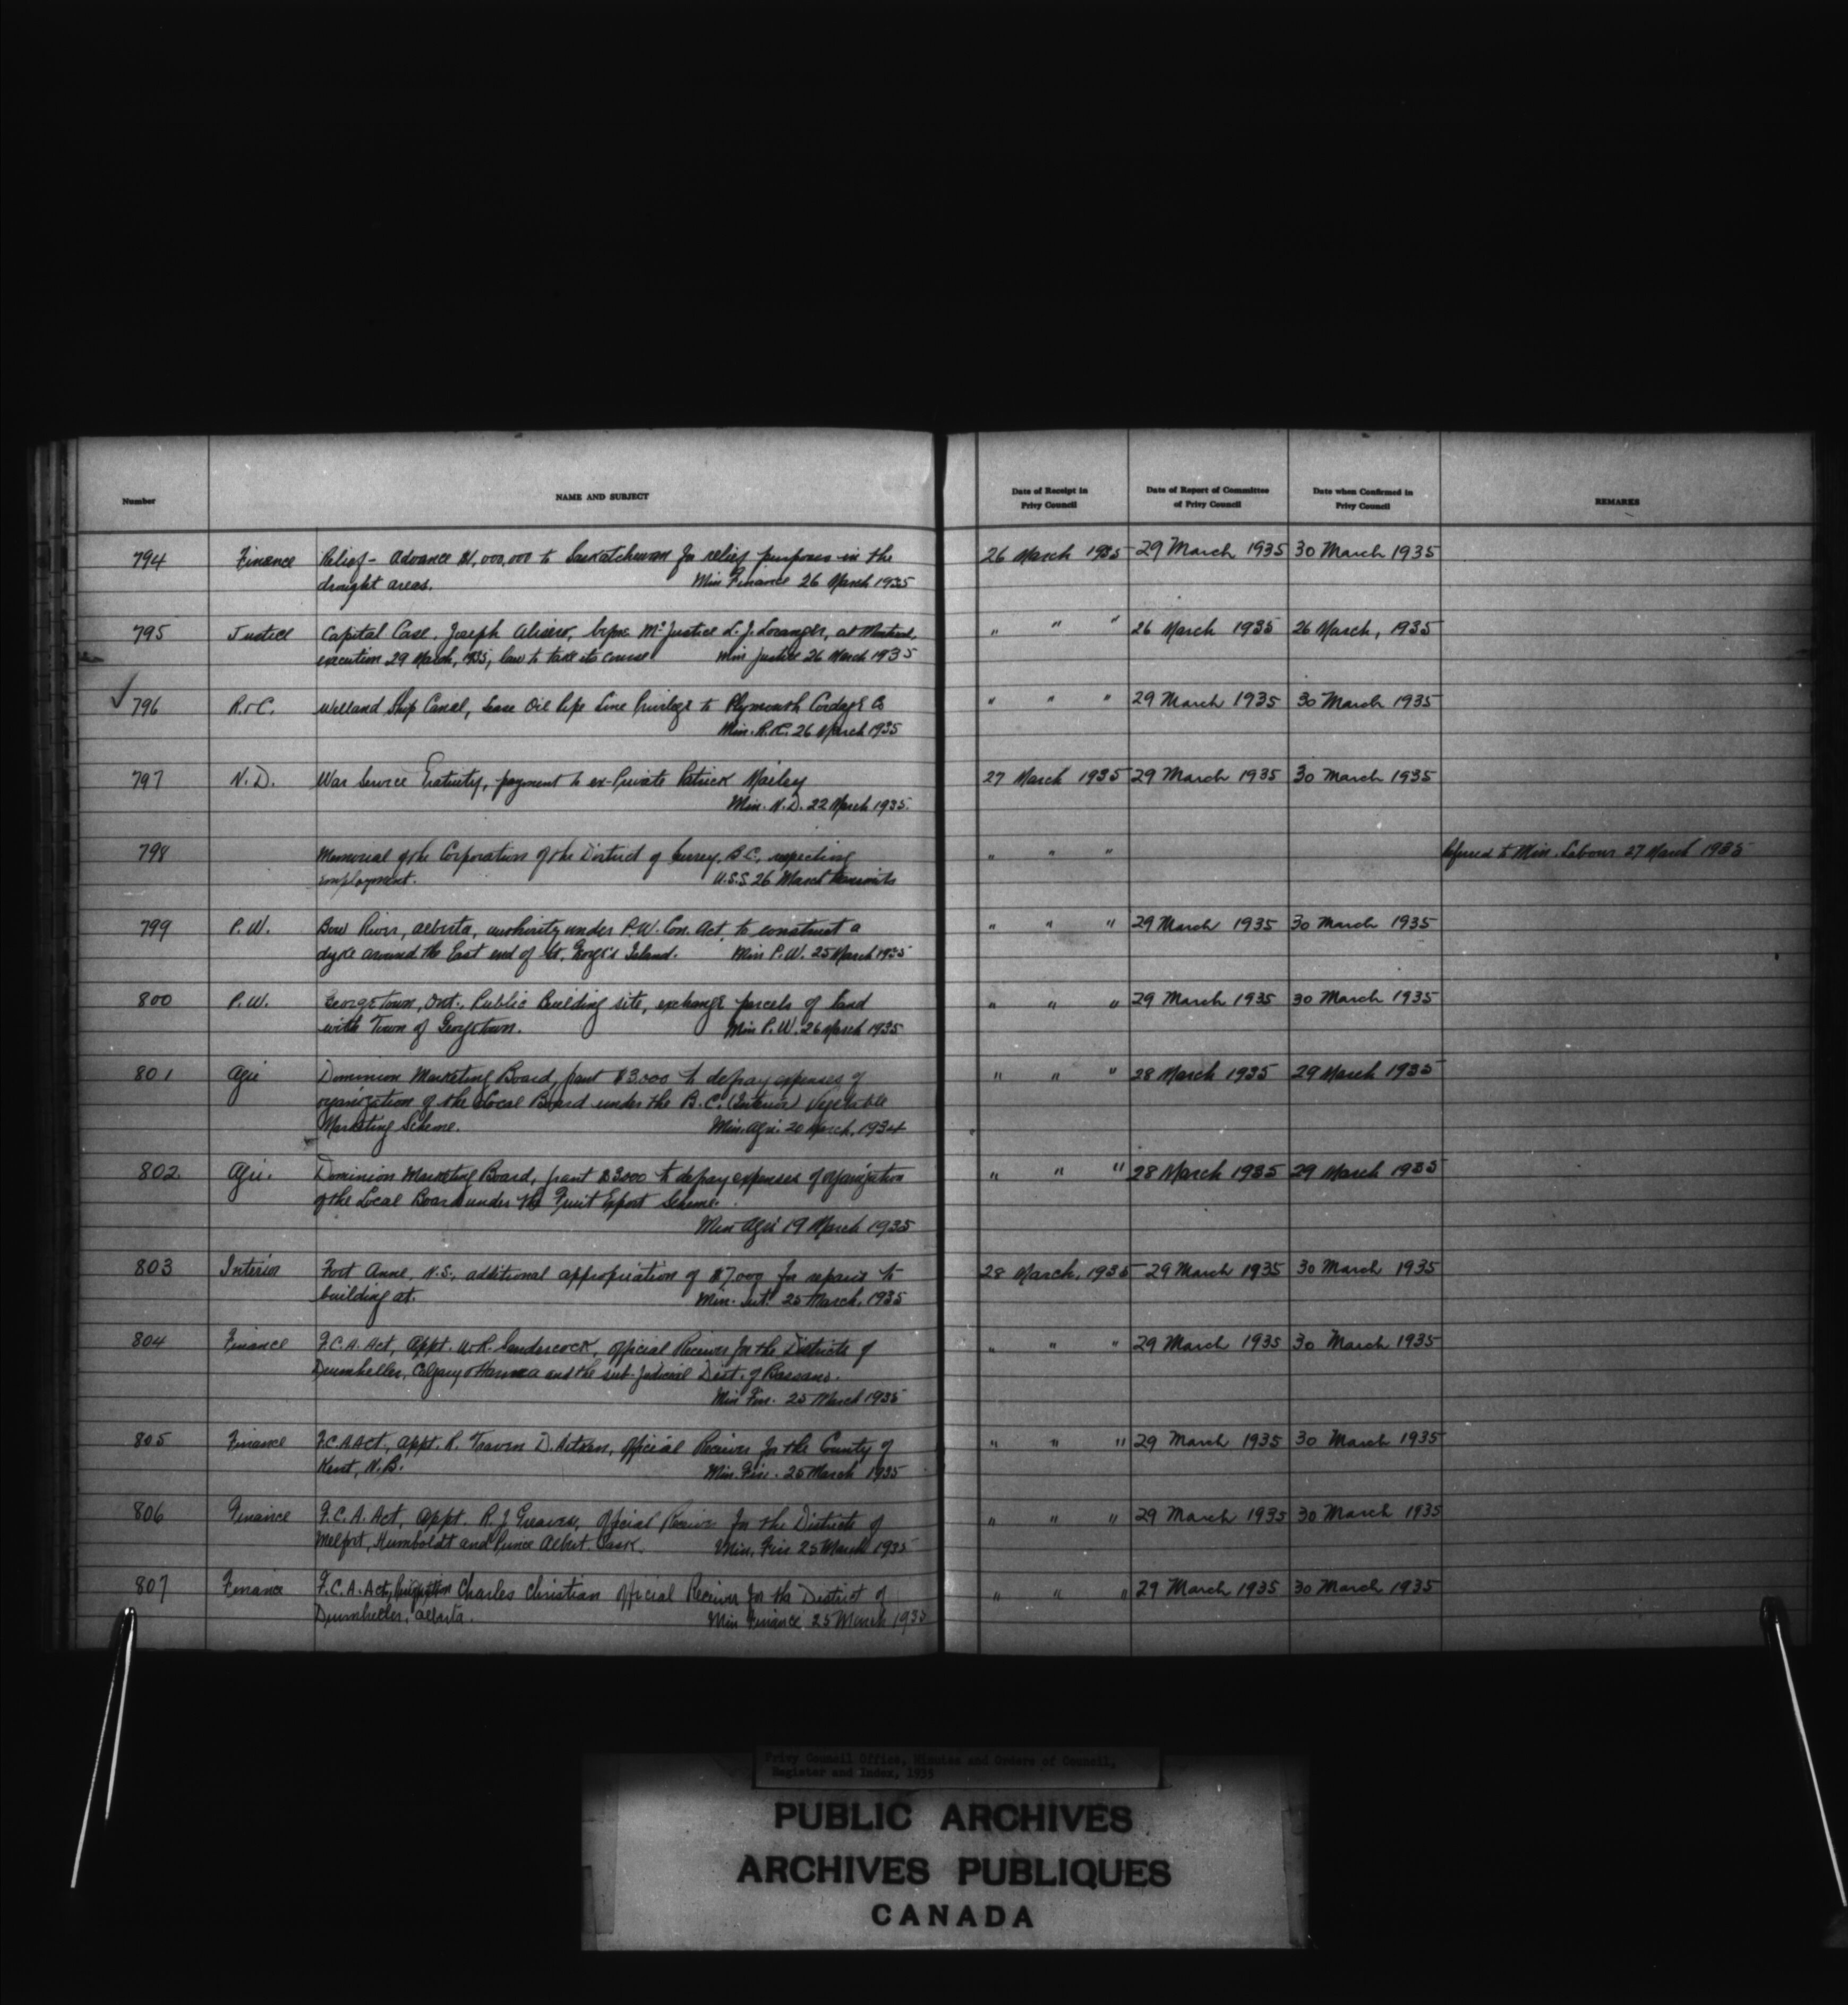 Number
NAME AND SUBJECT
Date of Receipt in Privy Council
Date of Report of Committee of Privy Council
Date when Confirmed in Privy Council
REMARKS
794 Finance Relief - Advance $1,000,000 to Saskatchewan for relief purposes in the 26 March 1935 29 March 1935 30 March 1935
drought areas. Min Finance 26 March 1935
795 Justice Capital Case, Joseph before Mr Justice L. J. Loranger, at Montreal, " " " 26 March 1935 26 March, 1935
execution 29 March, 1935, law to take its course Min Justice 26 March 1935
796 R. & C. Welland Ship Canal, lease Oil Pipe Line Privilege to Plymouth Cordage Co " " " 29 March 1935 30 March 1935
Min. R.C. 26 March 1935
797 N. D. War Service Gratuity, payment to ex-Private Patrick Mailey 27 March 1935 29 March 1935 30 March 1935
Min. N. D. 22 March 1935.
798 Memorial of the Corporation of the District of Surrey, B.C. respecting " " " Referred to Min. Labour 27 March 1935
employment. U.S.S 26 March transmits
799 P. W. Bow River, Alberta, authority under P.W. Con. Act, to construct a " " " 29 March 1935 30 March 1935
dyke around the East end of St. George's Island. Min P.W. 25 March 1935
800 P. W. Georgetown, Ont., Public Building site, exchange parcels of land " " " 29 March 1935 30 March 1935
with Town of Georgetown. Min P.W. 26 March 1935
801 Agri Dominion Marketing Board, grant $3.000 to defray expenses of " " " 28 March 1935 29 March 1935
organization of the Local Board under the B.C. (Interior) Vegetable
Marketing Scheme. Min. Agri. 20 March, 1934
802 Agri. Dominion Marketing Board, grant $3000 to defray expenses of organization " " " 28 March 1935 29 March 1935
of the Local Board under the Fruit Export Scheme.
Min Agri 19 March 1935
803 Interior Fort Anne, N.S., additional appropriation of $7,000 for repairs to 28 March, 1935 29 March 1935 30 March 1935
building at. Min. Int. 25 March, 1935
804 Finance F.C.A. Act, Appt. W.R. Sandercock, Official Receiver for the Districts of " " " 29 March 1935 30 March 1935
Drumheller, Calgary & Hanna and the sub-Judicial Dist. of Bassano.
Min Fin. 25 March 1935
805 Finance F.C.A Act, Appt. R. D. Aitken, Official Receiver for the County of " " " 29 March 1935 30 March 1935
Kent, N.B. Min. Fin. 25 March 1935
806 Finance F.C.A. Act, Appt. R. J. Greaves, Official Receiver for the Districts of " " " 29 March 1935 30 March 1935
Melfort, Humboldt and Prince Albert. Sask. Min. Fin 25 March 1935
807 Finance F.C.A. Act, Charles Christian Official Receiver for the District of " " " 29 March 1935 30 March 1935
Drumheller, Alberta. Min Finance 25 March 1935
Privy Council Office, Minutes and Orders of Council,
Register and Index, 1935
PUBLIC ARCHIVES
ARCHIVES PUBLIQUES
CANADA